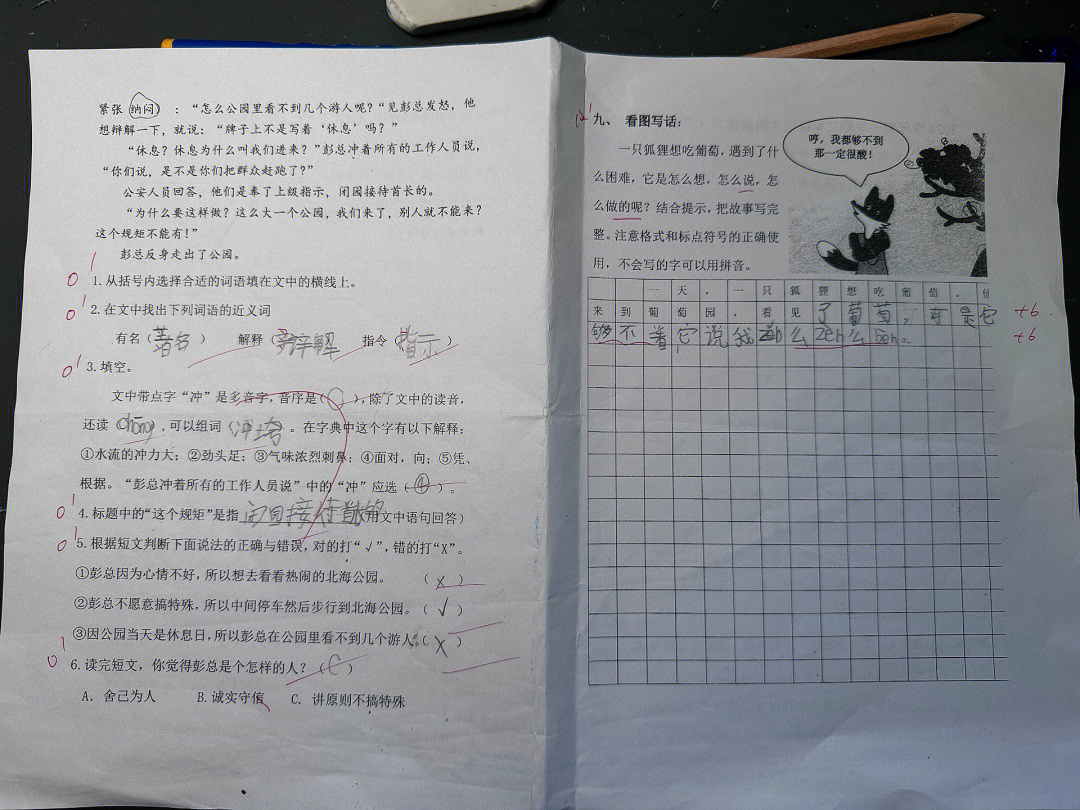 紧张 纳闷) : “怎么公园里看不到几个游人呢?“见彭总发怒，他
想辩解一下，就说：“牌子上不是写着‘休息’吗？”
“休息？休息为什么叫我们进来？”彭总冲着所有的工作人员说，
“你们说，是不是你们把群众赶跑了？”
公安人员回答，他们是奉了上级指示，闭园接待首长的。
“为什么要这样做？这么大一个公园，我们来了，别人就不能来？
这个规矩不能有！”
彭总反身走出了公园。
0 1 1.从括号内选择合适的词语填在文中的横线上。
0 1 2.在文中找出下列词语的近义词
有名（著名） 解释（辩解 指令（指示）
0 1 3.填空。
文中带点字“冲”是多音字，音序是（C），除了文中的读音，
还读（chōng），可以组词（冲垮）。在字典中这个字有以下解释：
①水流的冲力大；②劲头足；③气味浓烈刺鼻；④面对，向；⑤凭、
根据。“彭总冲着所有的工作人员说”中的“冲”应选（④）。
0 1 4.标题中的“这个规矩”是指 闭园接待首长的（用文中语句回答）
0 1 5.根据短文判断下面说法的正确与错误，对的打“√”，错的打“X”。
①彭总因为心情不好，所以想去看看热闹的北海公园。（X）
②彭总不愿意搞特殊，所以中间停车然后步行到北海公园。（√）
③因公园当天是休息日，所以彭总在公园里看不到几个游人。（X）
0 1 6.读完短文，你觉得彭总是个怎样的人？（C）
A. 舍己为人 B.诚实守信 C. 讲原则不搞特殊
九、 看图写话：
一只狐狸想吃葡萄，遇到了什
么困难，它是怎么想，怎么说，怎
么做的呢？结合提示，把故事写完
整。注意格式和标点符号的正确使
用，不会写的字可以用拼音。
哼，我都够不到
那一定很酸！
一天，一只狐狸想吃葡萄。他
来到葡萄园，看见了葡萄，可是它 +6
够不着它说我 么zen么ben。 +6